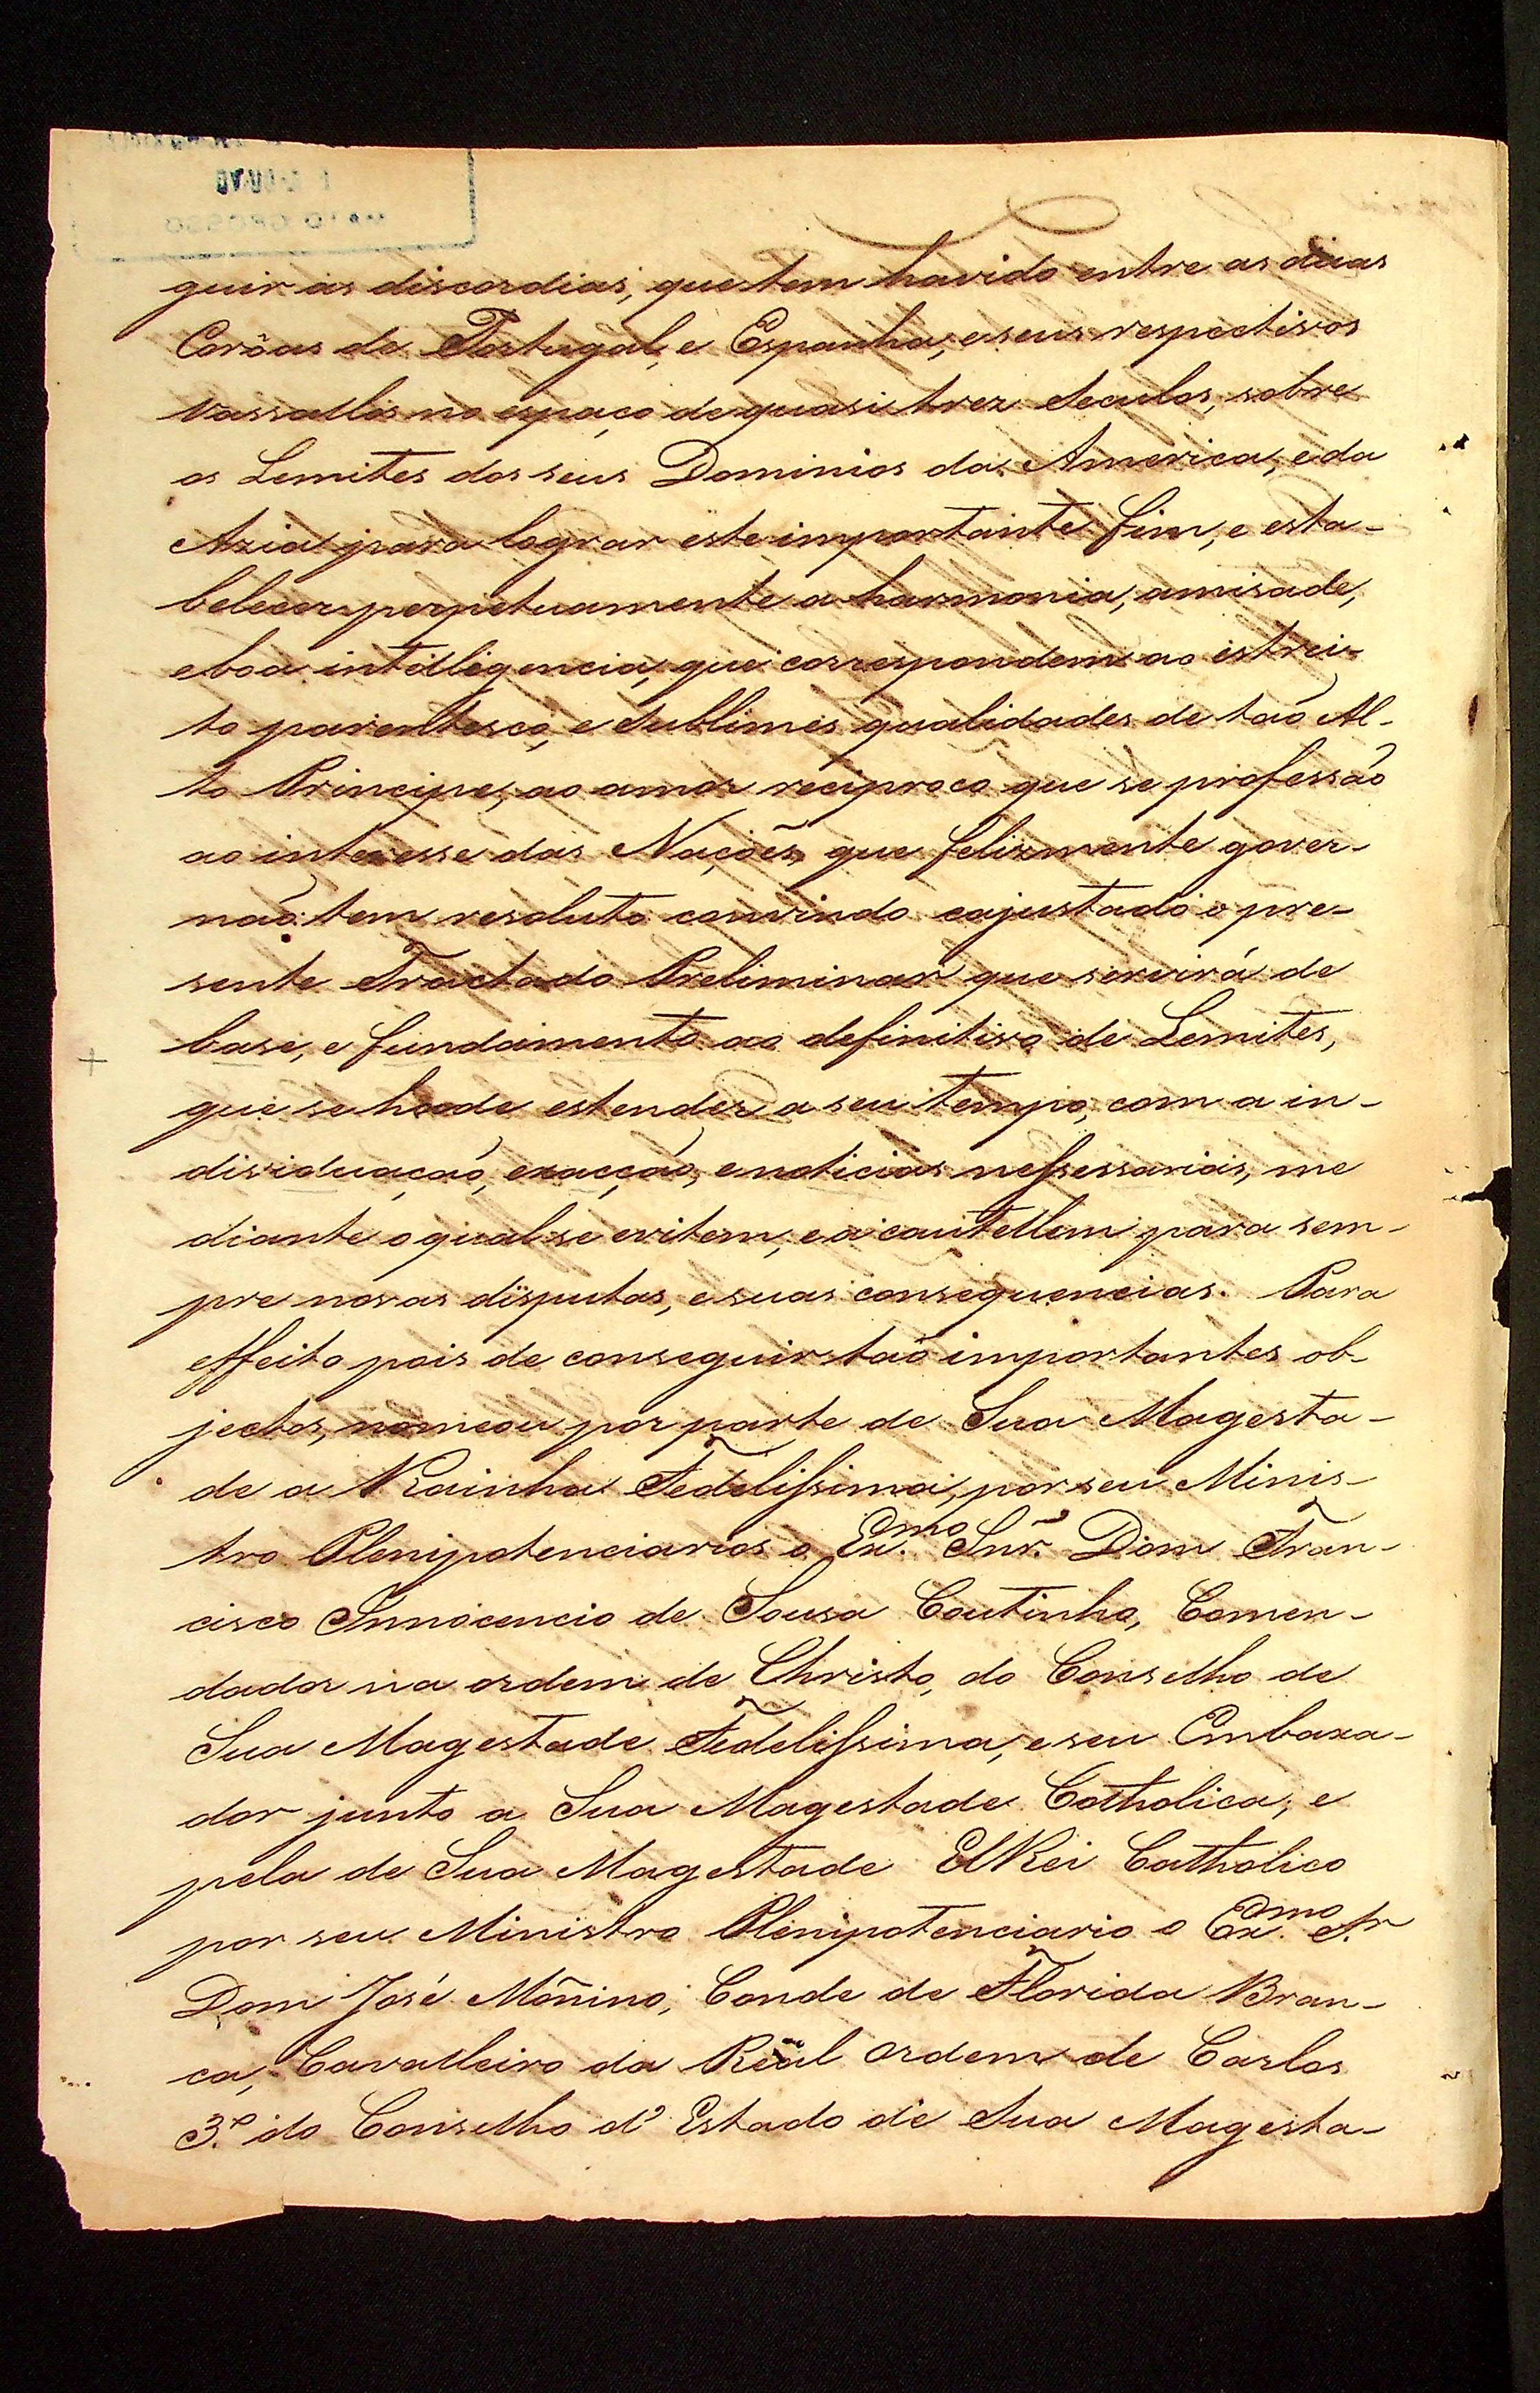 guir as discordias, que tem havido entre as duas
Corôas de Portugal, e Espanha, e seus respectivos
vassallos no espaço de quasi trez Seculos, sobre
os Lemites dos seus Dominios da America, e da
Azia para lograr este importante fim, e esta-
belecer perpetuamente a harmonia, amisade,
e boa intelligencia, que correspondem ao istrei-
to parentesco, e Sublimes qualidades de tão Al-
to Principe, ao amor reciproco que se professão
ao interesse das Nações, que felizmente gover-
não: tem resoluto convindo e ajustado o pre-
sente Tractado Preliminar que servirá de
base, e fundamento ao definitivo de Lemites,
que se hade estender a seu tempo, com a in-
dividuação, exacção, e noticias nessessarias, me
diante o qual se evitem, e a cautellem para sem-
pre novas disputas, e suas consequencias. Para
effeito pois de conseguir tão importantes ob-
jectos, nomeou por parte de Sua Magesta-
de a Rainha Fedelissima, por seu Minis-
tro Plenipotenciarios o Ex.mo Snr. Dom Fran-
cisco Innocencio de Sousa Coutinho, Comen-
dador na ordem de Christo, do Conselho de
Sua Magestade Fedelissima, e seu Embaxa-
dor junto a Sua Magestade Catholica, e
pela de Sua Magestade ElRei Catholico
por seu Ministro Plenipotenciario o Ex.mo S.r
Dom José Moñino, Conde de Florida Bran-
ca, Cavalleiro da Real Ordem de Carlos
3.º do Conselho d'Estado de Sua Magesta-